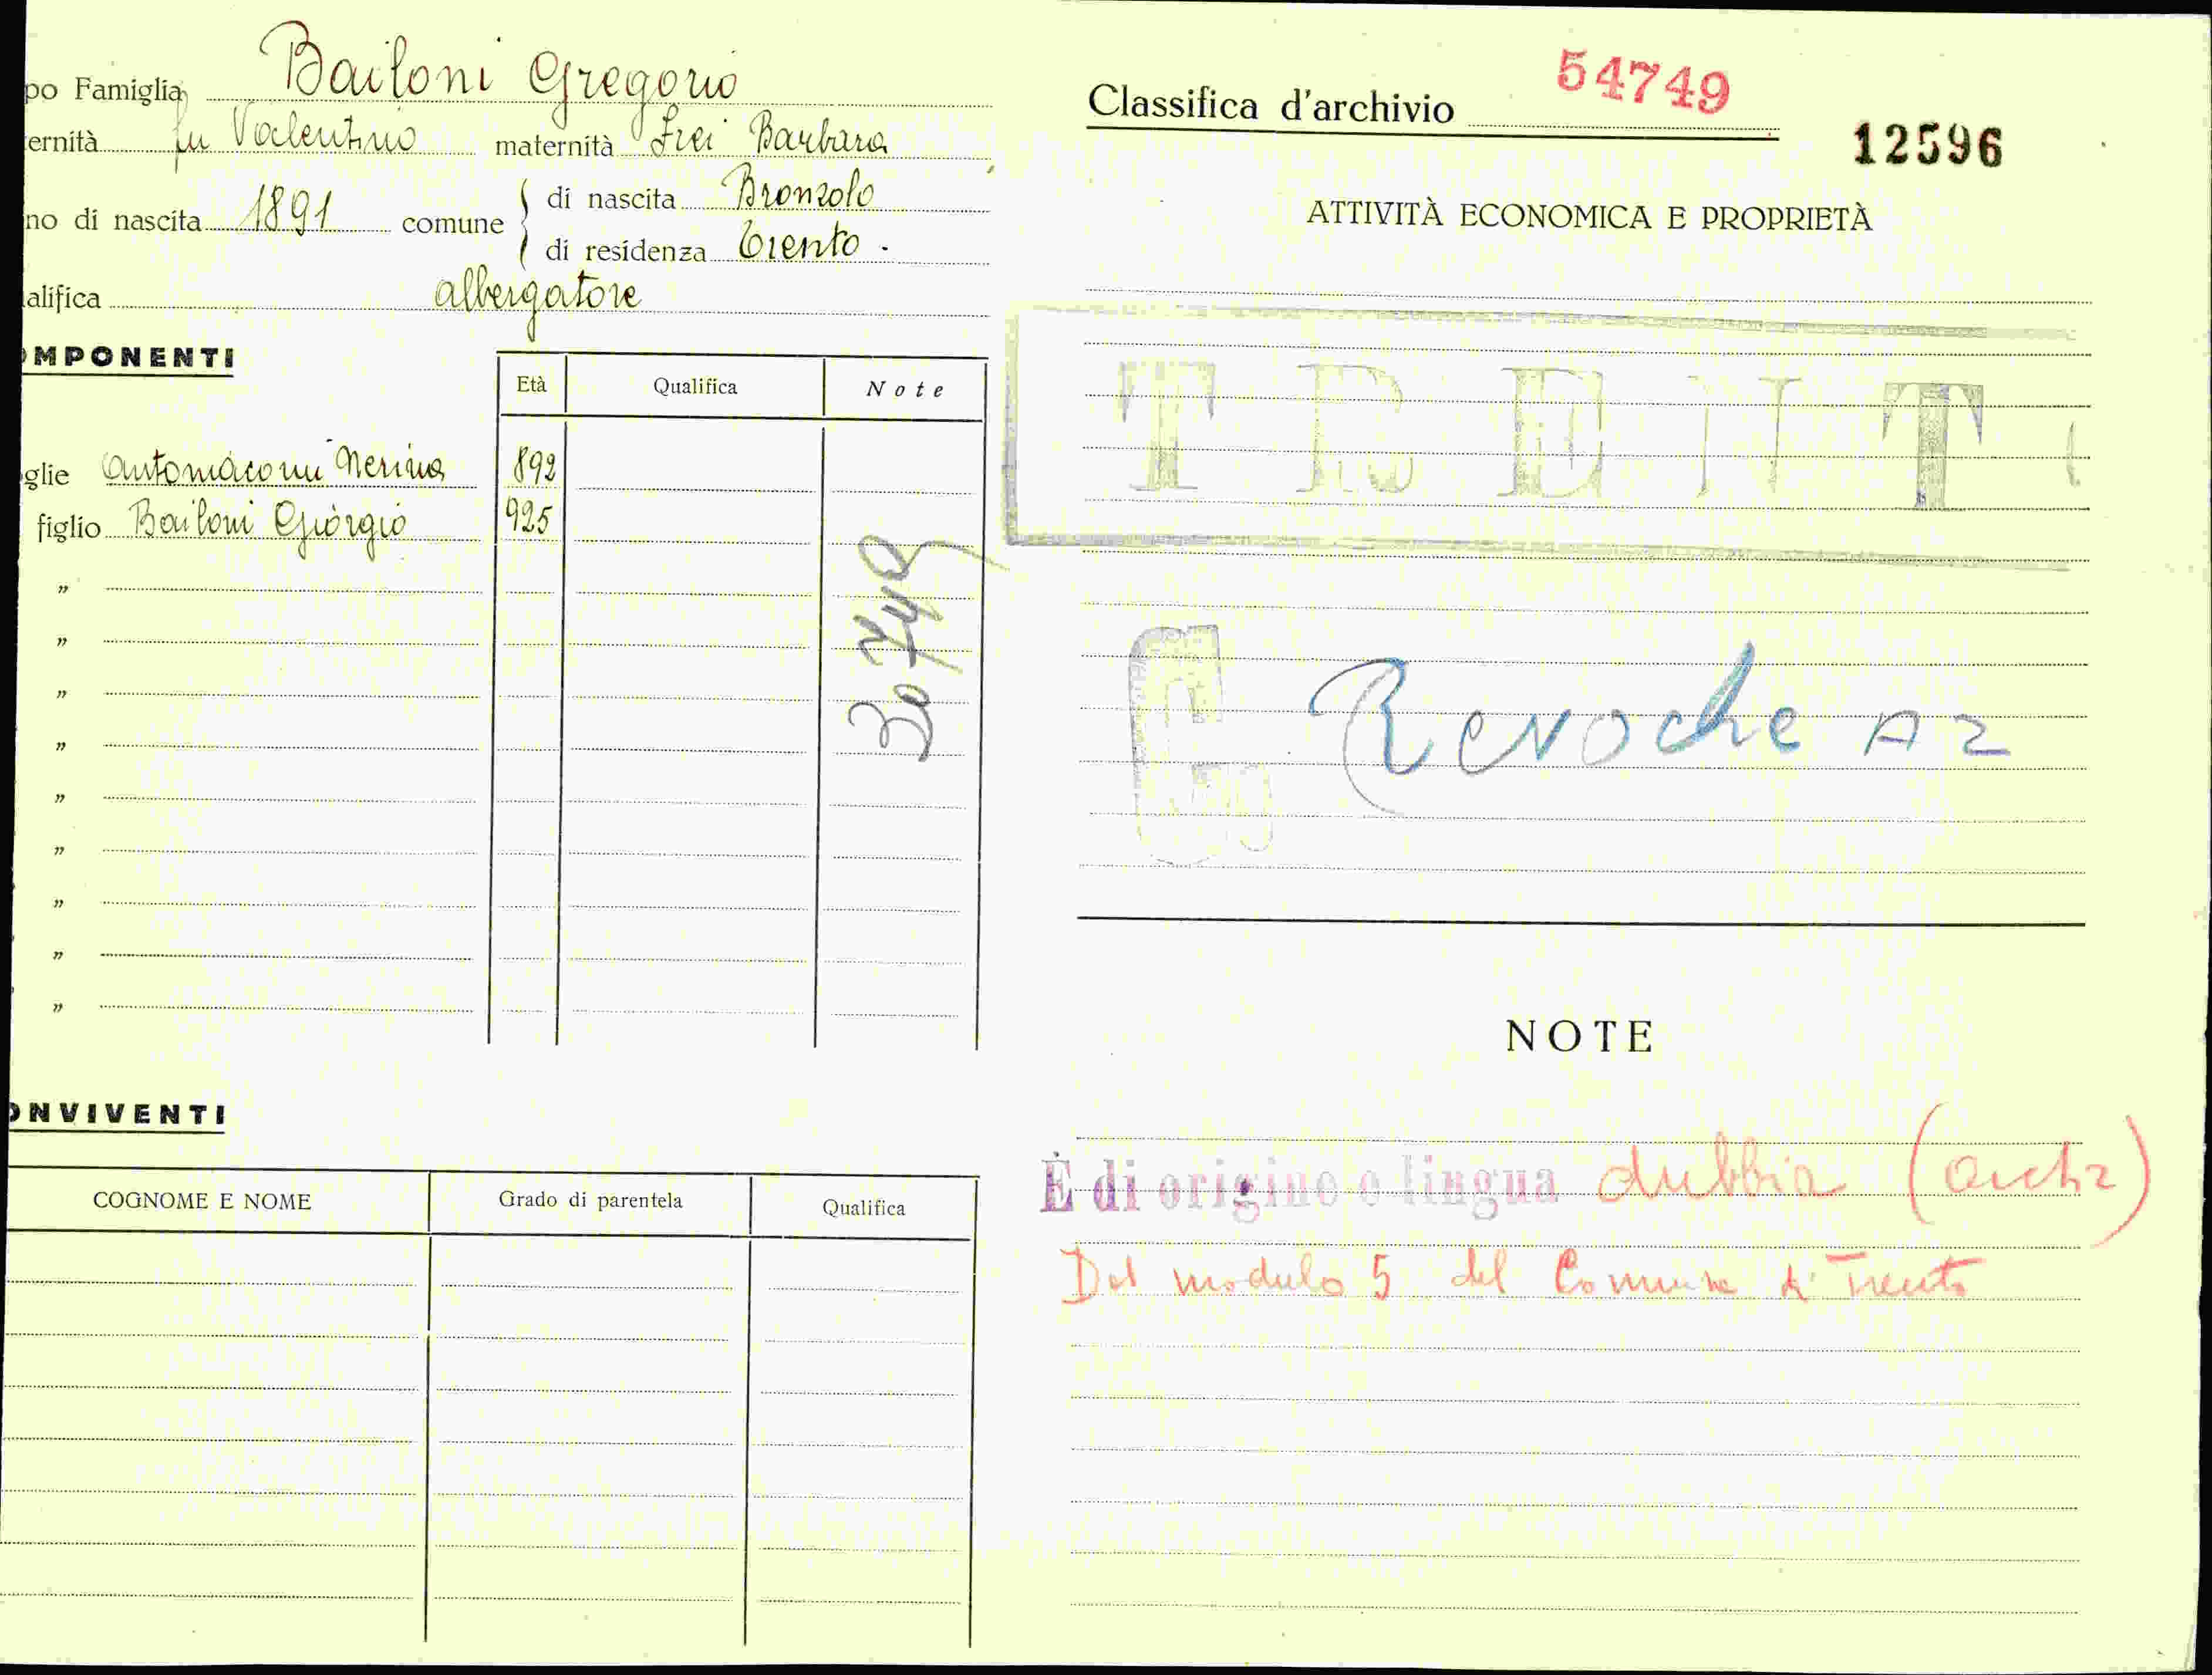 po Famiglia Bailoni Gregorio
ernità fu Valentino maternità Frei Barbara
no di nascita 1891 comune di nascita Bronzolo
di residenza Trento.
alifica albergatore
OMPONENTI
Età Qualifica Note
glie Nerina 892
figlio Bailoni Giorgio 925
"
"
"
"
"
"
"
"
"
ONVIVENTI
COGNOME E NOME Grado di parentela Qualifica
Classifica d'archivio 54749
12596
ATTIVITÀ ECONOMICA E PROPRIETÀ
TRENT
Revoche AR
NOTE
È di origine e lingua dubbia
Dal modulo 5 del Comune di Trento